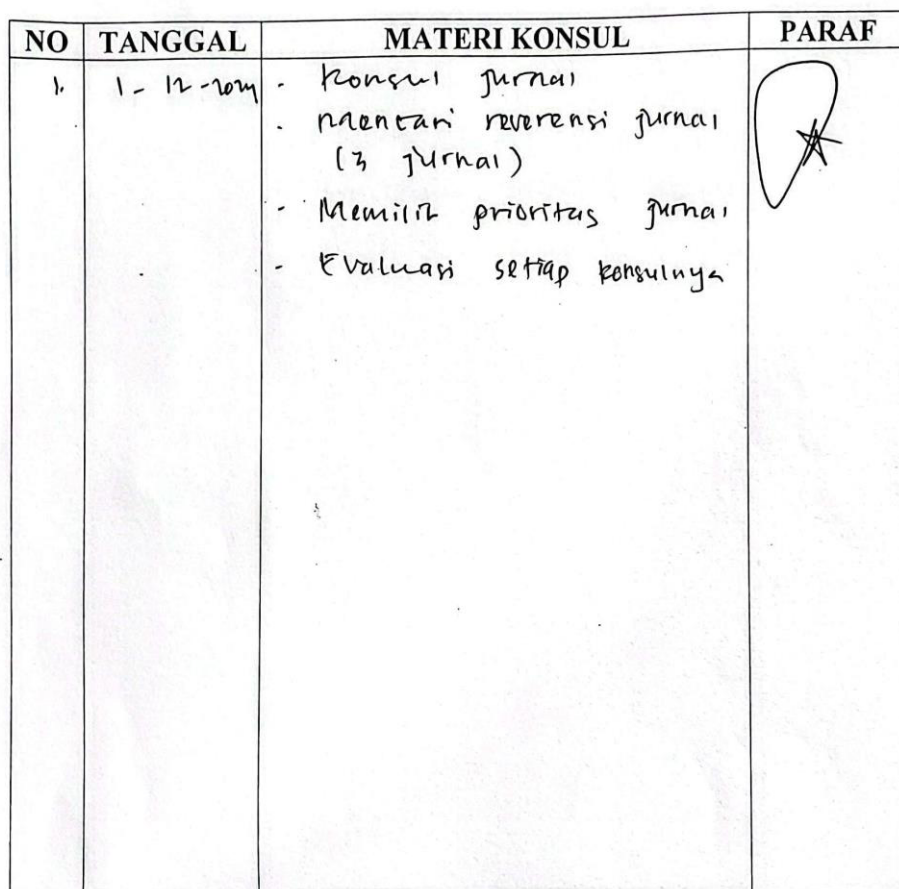 NO TANGGAL MATERI KONSUL PARAF
1. 1-12-2024 - Konsul jurnal
- Mencari reverensi jurnal
(3 jurnal)
- Memilih prioritas jurnal
- Evaluasi setiap konsulnya